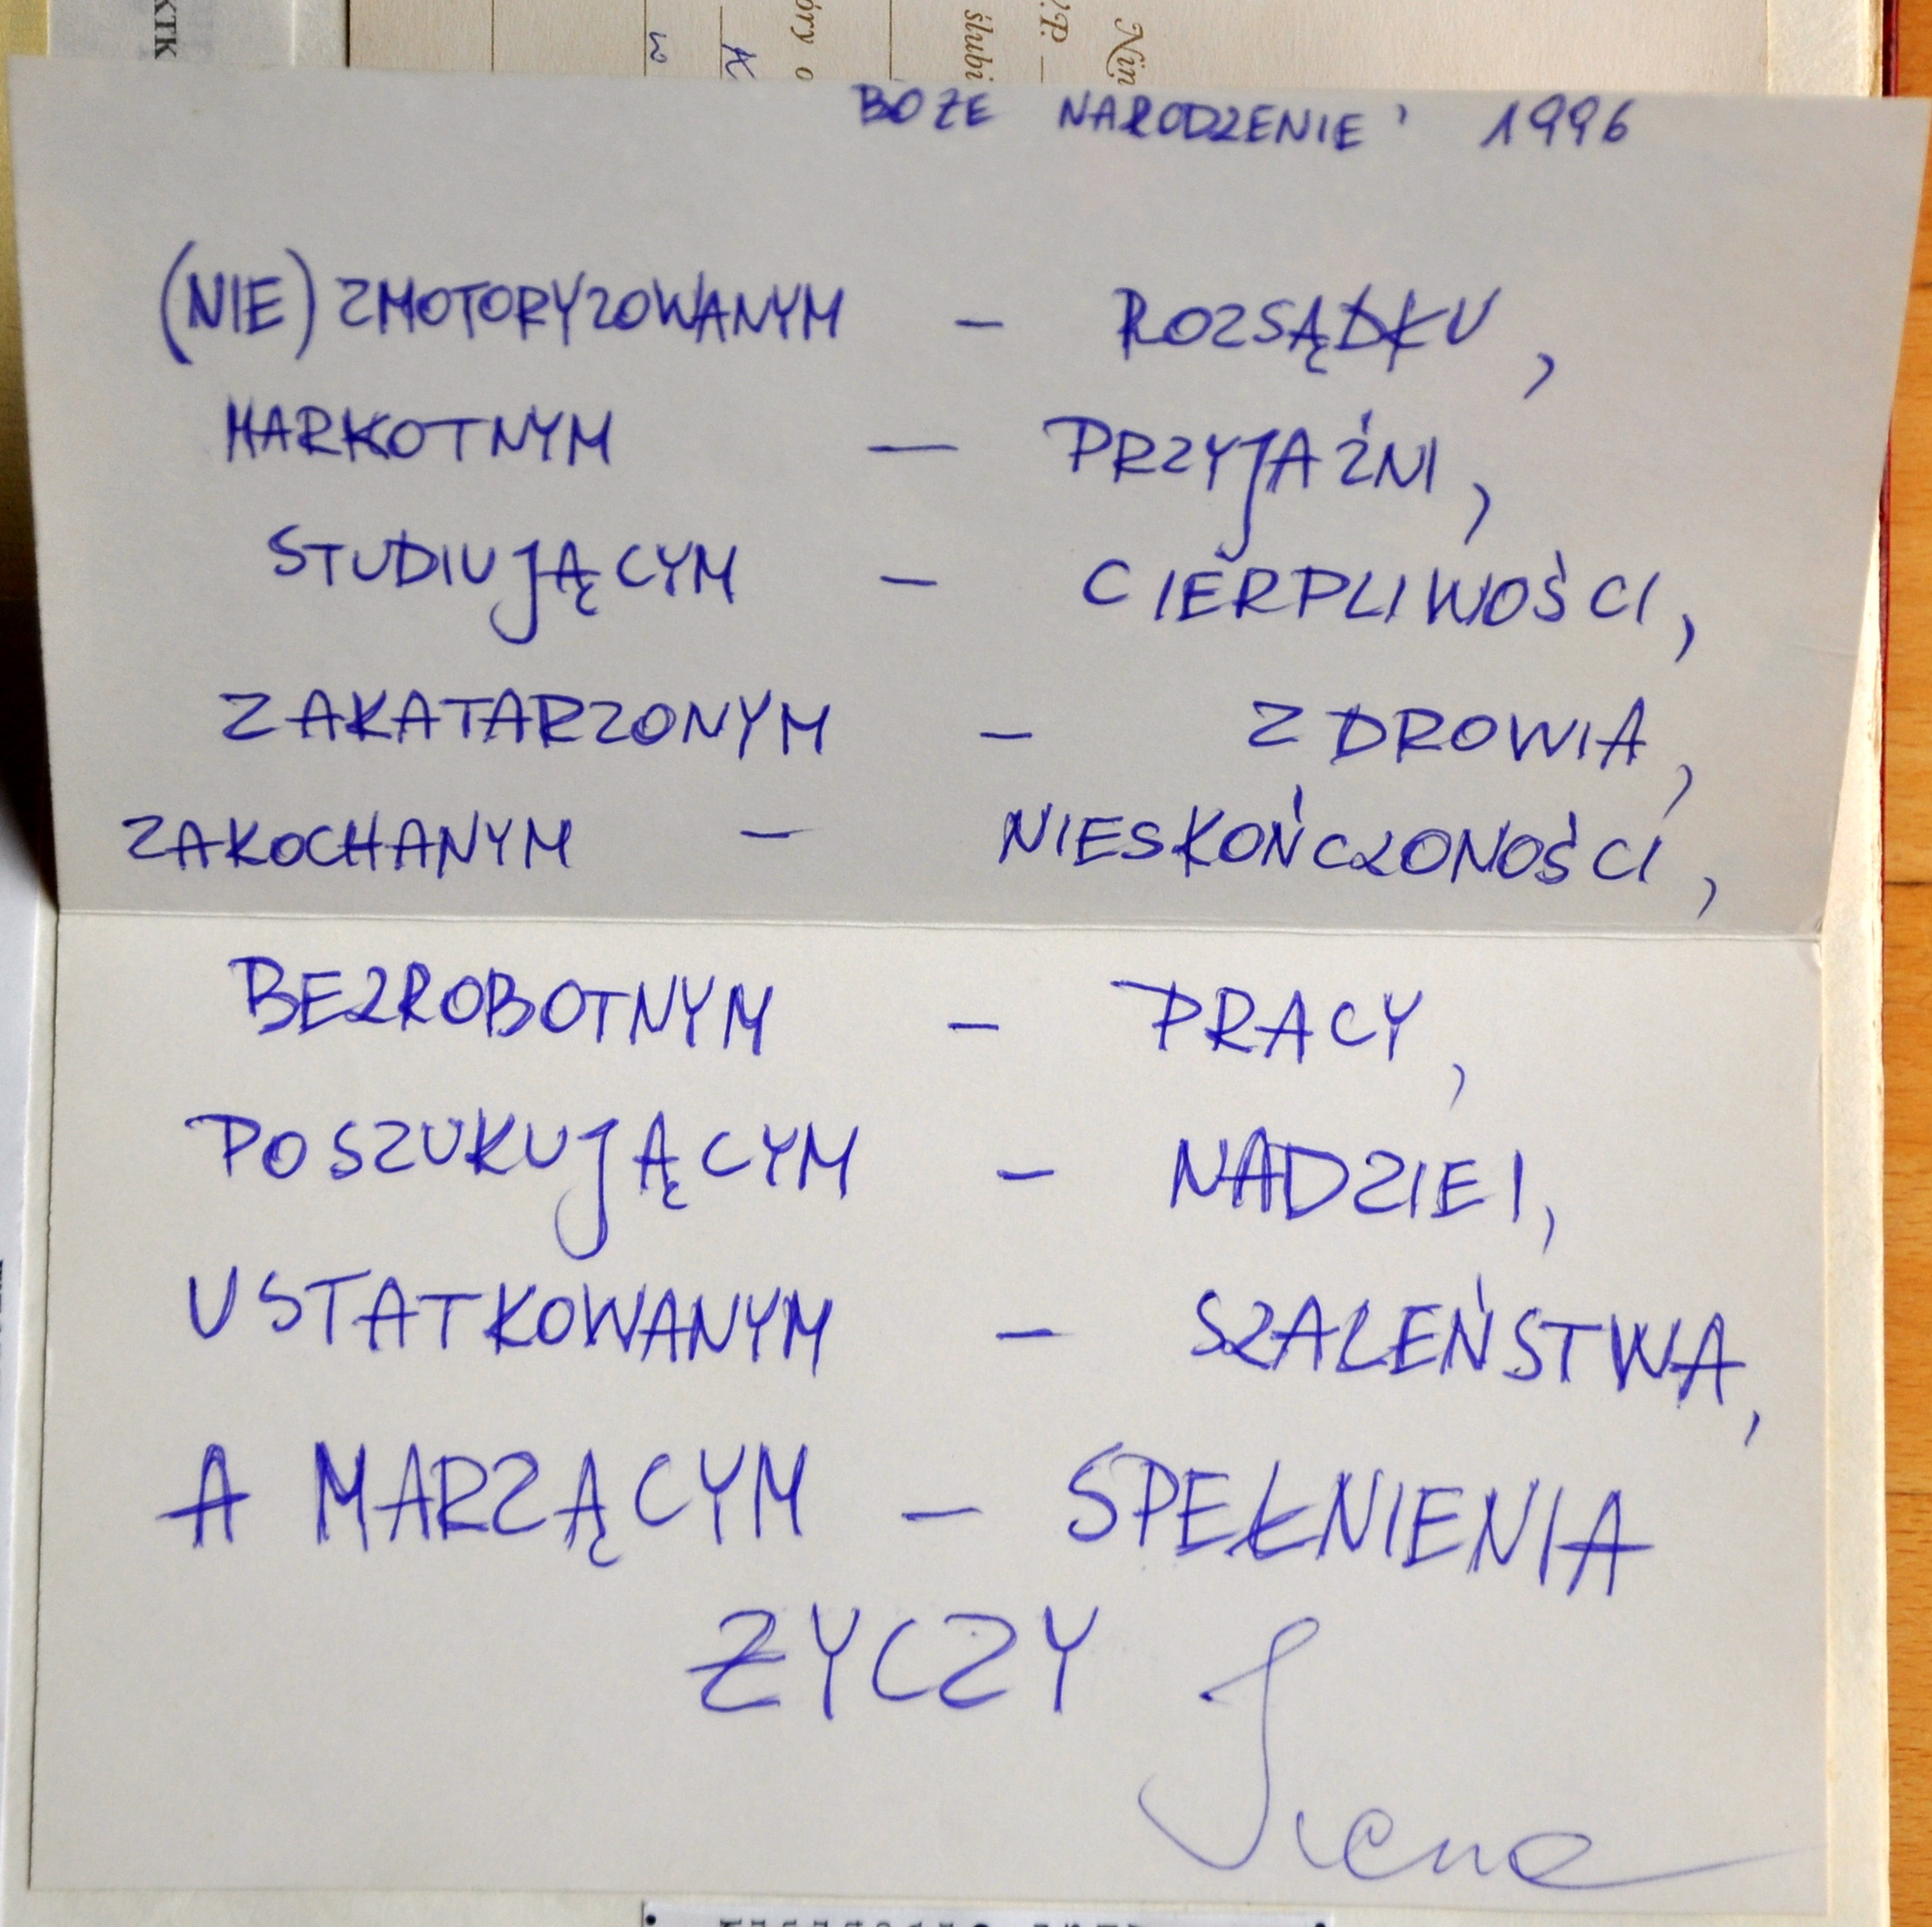 KTK
w
K
óry o
ślubi
Nin
BOŻE NARODZENIE' 1996
(NIE) ZMOTORYZOWANYM – ROZSĄDKU,
MARKOTNYM — PRZYJAŹNI,
STUDIUJĄCYM – CIERPLIWOŚCI,
ZAKATARZONYM – ZDROWIA,
ZAKOCHANYM – NIESKOŃCZONOŚCI,
BEZROBOTNYM – PRACY,
POSZUKUJĄCYM – NADZIEI,
USTATKOWANYM – SZALEŃSTWA,
A MARZĄCYM – SPEŁNIENIA
ŻYCZY Irena